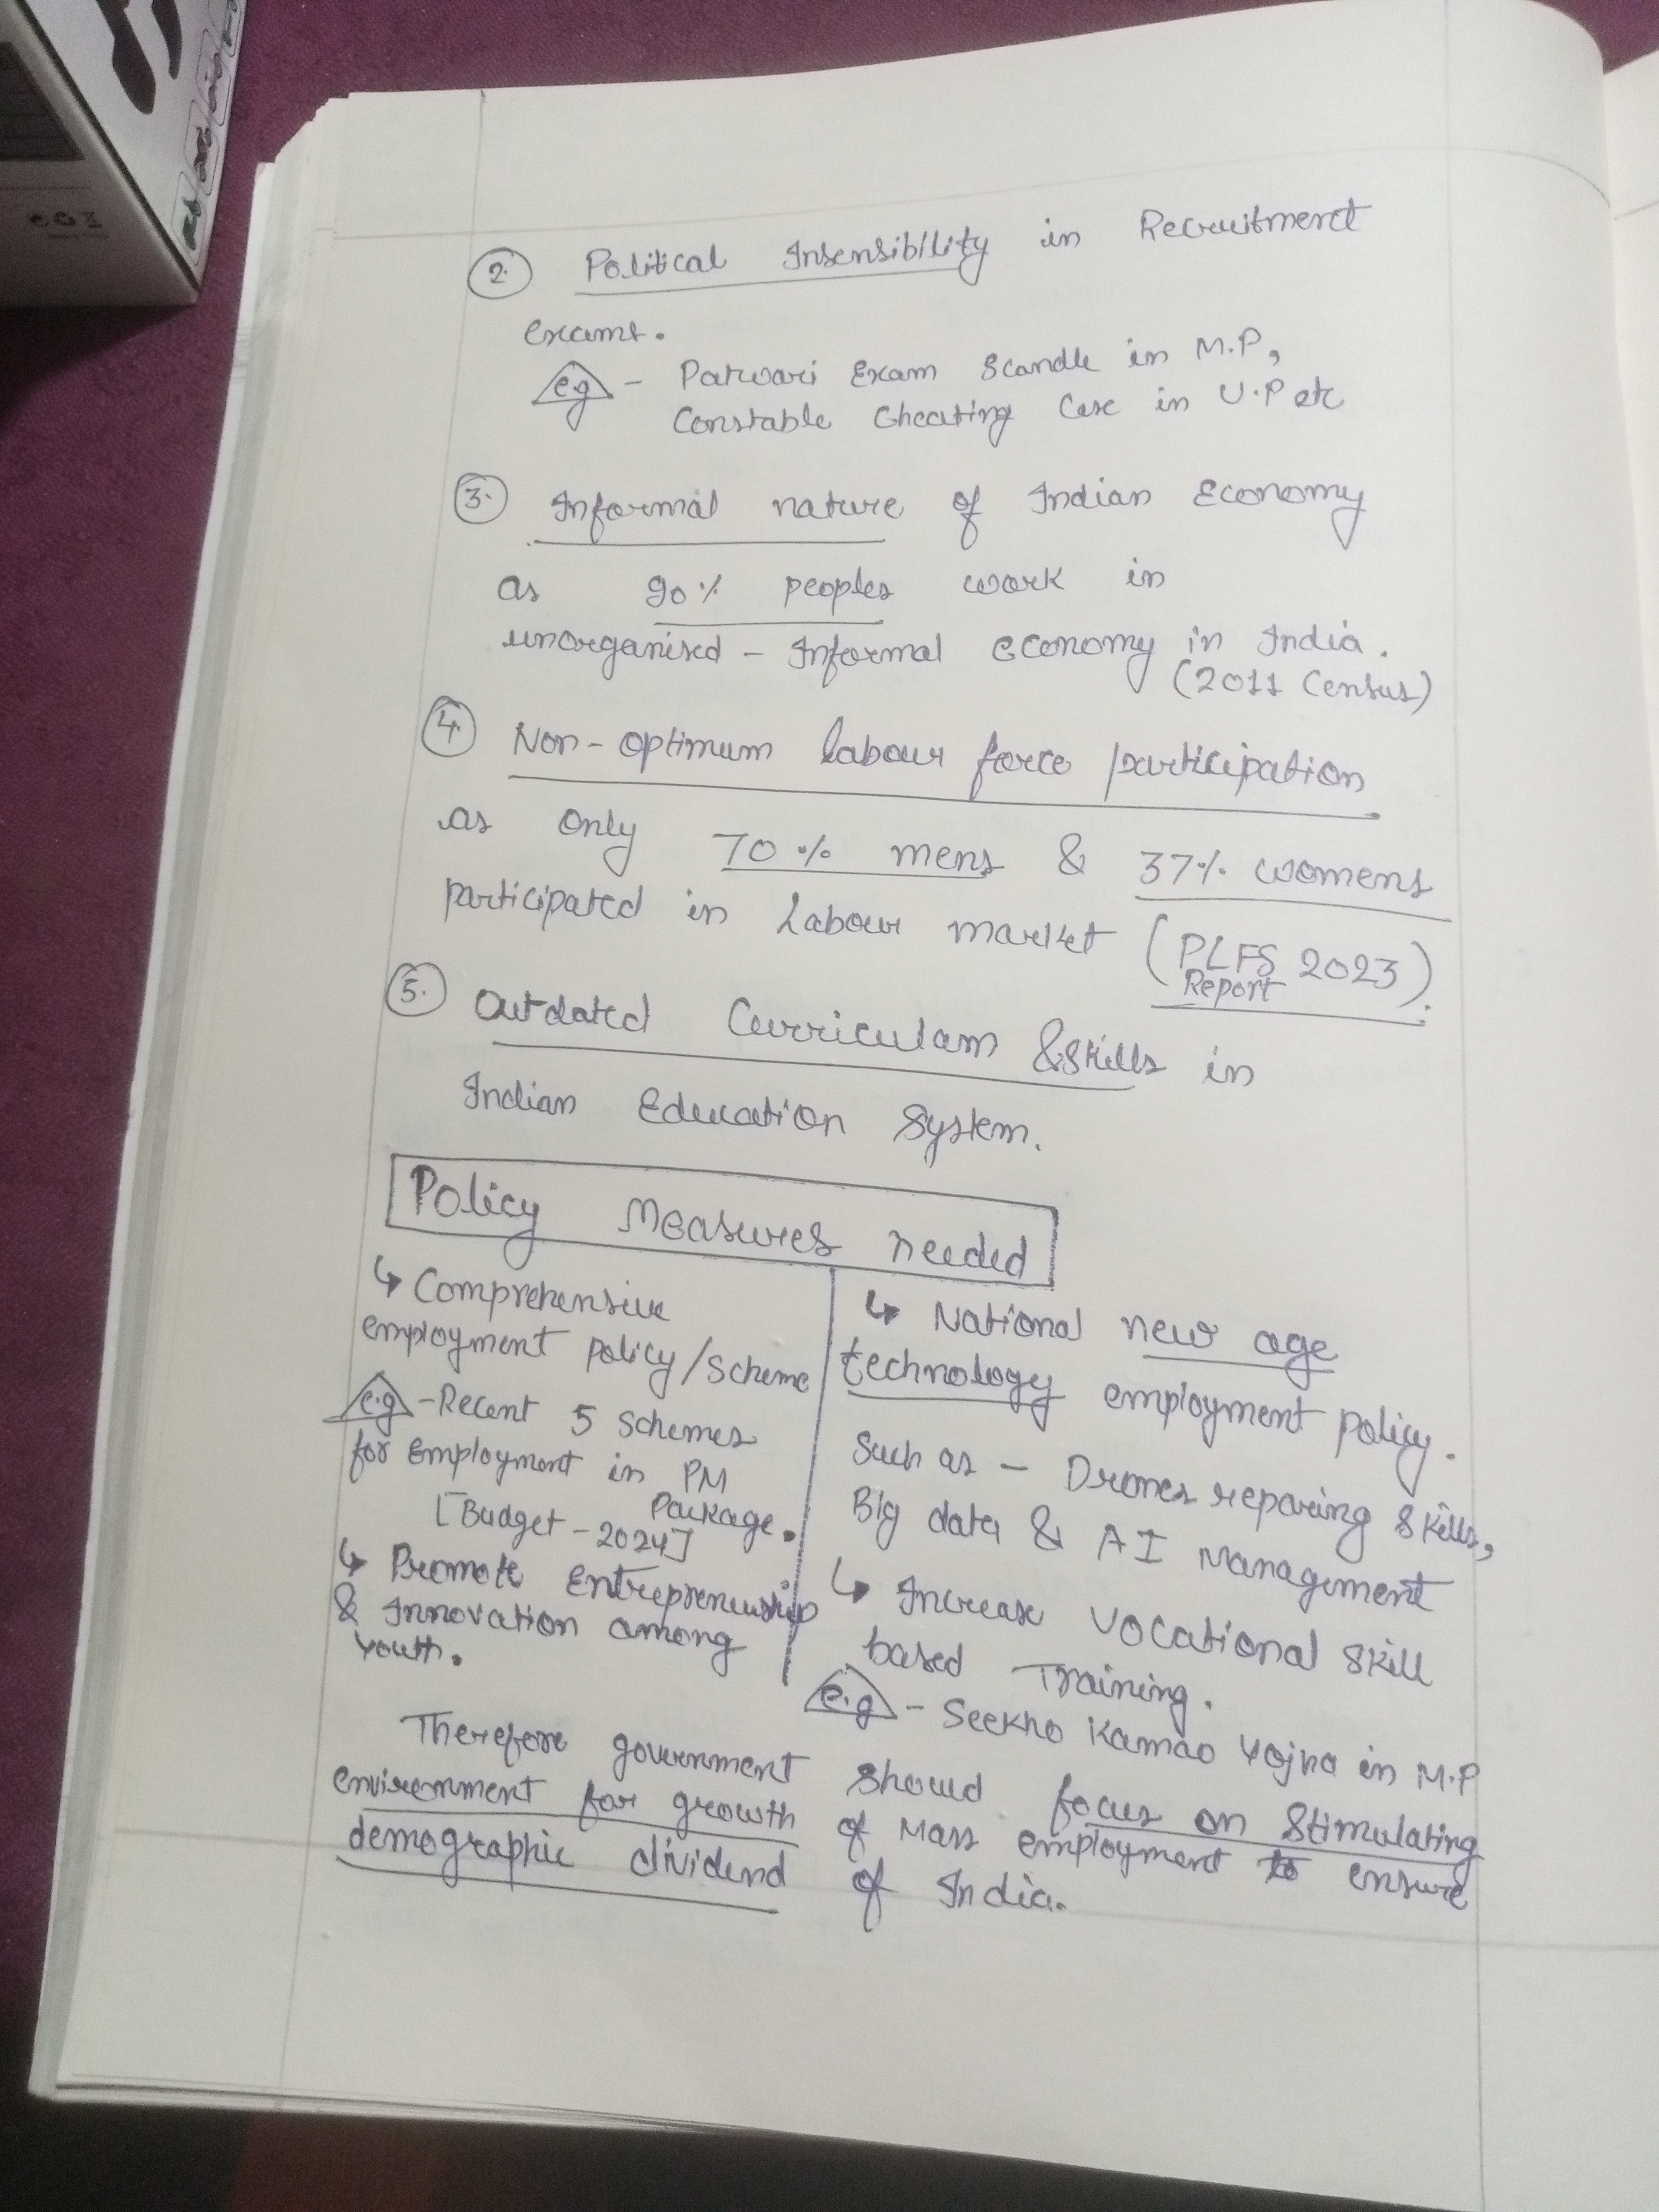 2. Political Insensibility in Recruitment
exams.
e.g - Patwari Exam Scandle in M.P,
Constable Cheating Case in U.P etc
3. Informal nature of Indian Economy
as 90% peoples work in
unorganised - Informal economy in India.
(2011 Census)
4. Non-optimum labour force participation
as only 70% mens & 37% womens
participated in Labour market (PLFS 2023).
Report
5. Outdated Curriculam & Skills in
Indian Education System.
Policy Measures needed
↳ Comprehensive
employment policy/scheme
e.g - Recent 5 Schemes
for Employment in PM
Package.
[Budget - 2024]
↳ Promote Entrepreneurship
& Innovation among
Youth.
↳ National new age
technology employment policy.
Such as - Drones reparing skills,
Big data & AI Management
↳ Increase vocational skill
based Training.
e.g - Seekho Kamao Yojna in M.P
Therefore government should focus on Stimulating
environment for growth of Mass employment to ensure
demographic dividend of India.